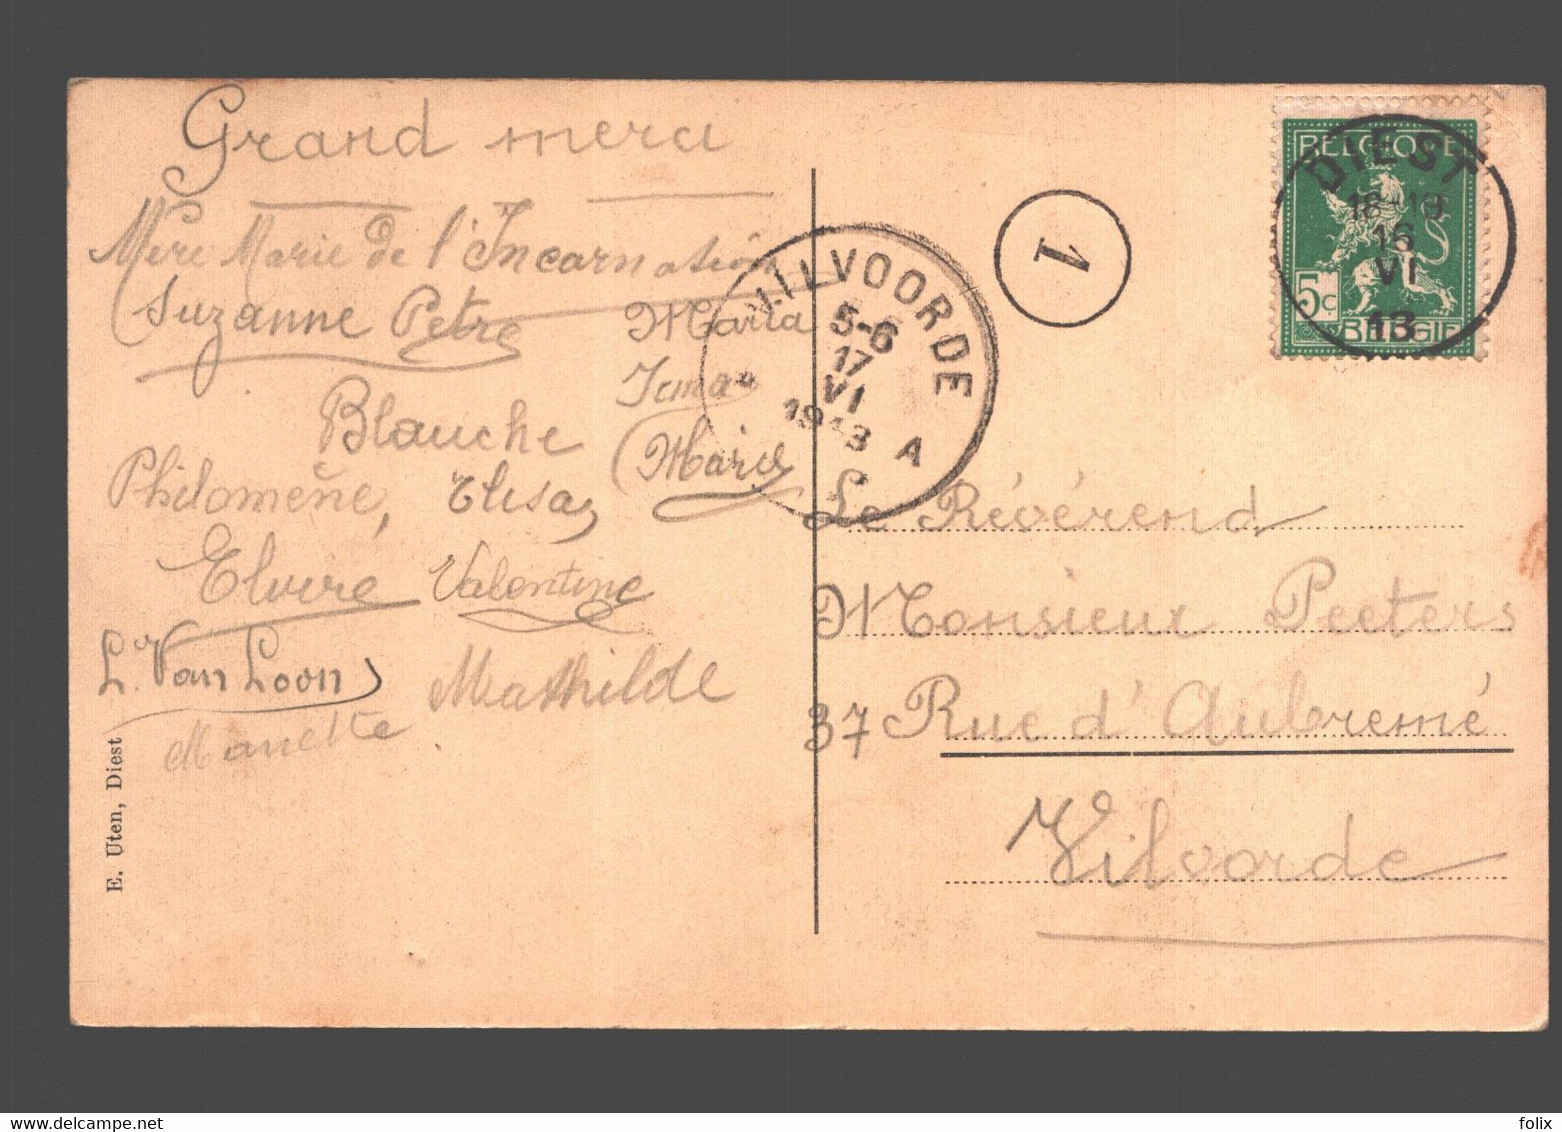 Grand merci
Mère Marie de l'Incarnation
Suzanne Petre
Maria
Irma
Blanche
Marie
Philomène, Elisa
Elvire Valentine
L. Van Loon
Mathilde
Mariette
E. Uten, Diest
VILVOORDE
5-6
17
VI
1913
A
1
BELGIQUE
5c
BELGIË
DIEST
18-19
16
VI
13
Le Révérend
Monsieur Peeters
37 Rue d'Aubremé
Vilvorde
folix